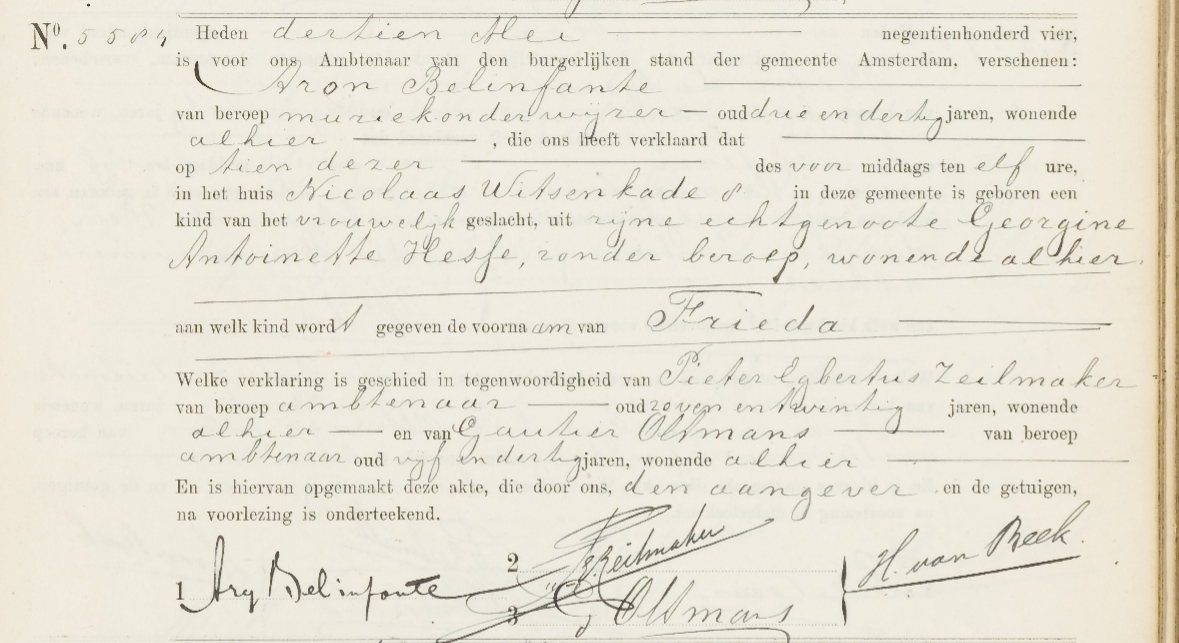 Nº. 5584
Heden dertien Mei negentienhonderd vier,
is voor ons Ambtenaar van den burgerlijken stand der gemeente Amsterdam, verschenen:
Aron Belinfante
van beroep muziekonderwijzer oud drie en dertig jaren, wonende
alhier , die ons heeft verklaard dat
op tien dezer des voor middags ten elf ure,
in het huis Nicolaas Witsenkade 8 in deze gemeente is geboren een
kind van het vrouwelijk geslacht, uit zijne echtgenoote Georgine
Antoinette Hesse, zonder beroep, wonende alhier.
aan welk kind wordt gegeven de voornaam van Frieda
Welke verklaring is geschied in tegenwoordigheid van Pieter Egbertus Zeilmaker
van beroep ambtenaar oud zeven en twintig jaren, wonende
alhier en van Gautier Oltmans van beroep
ambtenaar oud vijf en dertig jaren, wonende alhier
En is hiervan opgemaakt deze akte, die door ons, den aangever en de getuigen,
na voorlezing is onderteekend.
1 Ary Belinfante 2 Zeilmaker H. van Beek.
3 G Oltmans